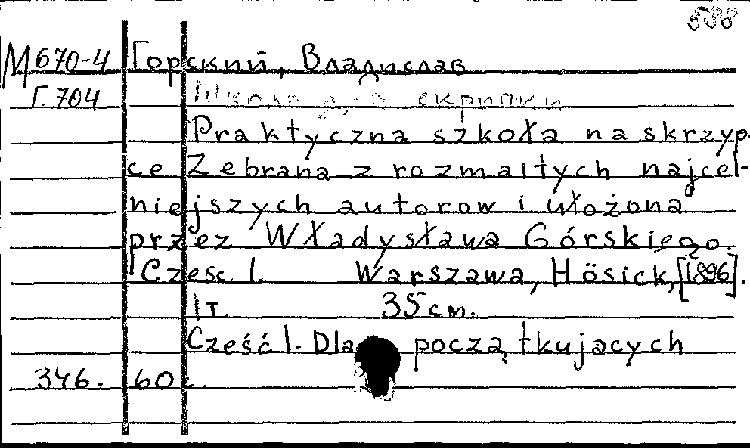 588
М 670-4 Горский, Владислав
Г.704 Школа для скрипки
Praktyczna szkoła na skrzyp-
ce Zebrana z rozmaitych najcel-
niejszych autorow i ułożona
przez Władysława Górskiego.
Czesc I. Warszawa, Hösick, [1896].
1т. 35 cm.
Cześć I. Dla początkujacych
346. 60 с.